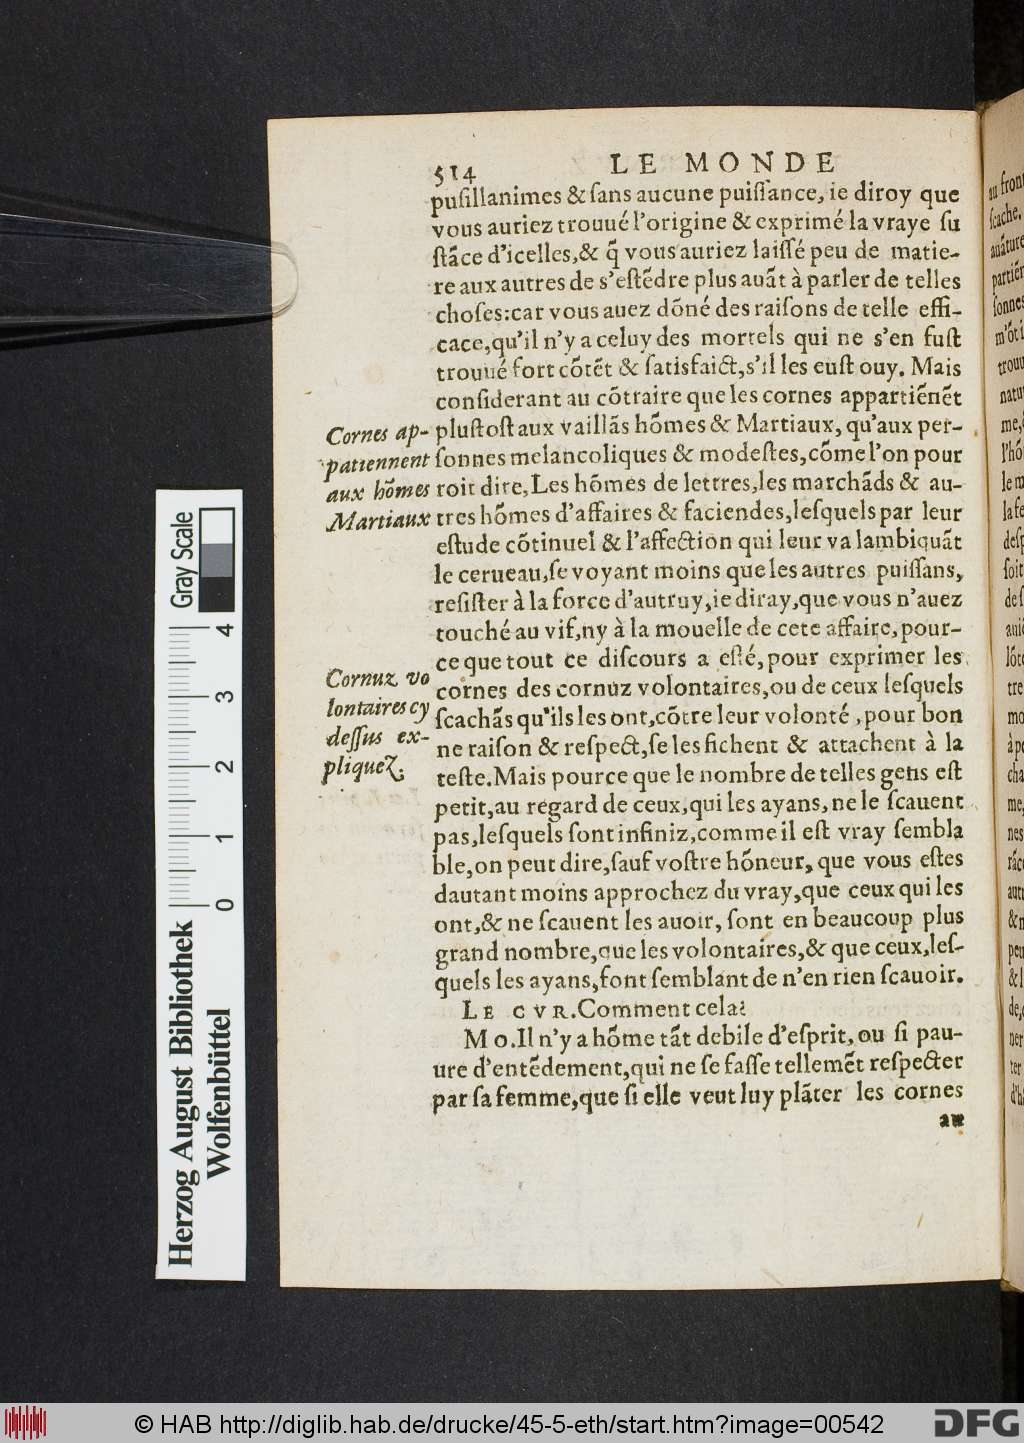 514
LE MONDE
puſillanimes & ſans aucune puiſſance, ie diroy que
vous auriez trouué l'origine & exprimé la vraye ſu
ſtãce d'icelles,& q̃ vous auriez laiſſé peu de matie-
re aux autres de s'eſtẽdre plus auãt à parler de telles
choſes:car vous auez dõné des raiſons de telle effi-
cace,qu'il n'y a celuy des mortels qui ne s'en fuſt
trouué fort cõtẽt & ſatisfaict,s'il les euſt ouy. Mais
conſiderant au cõtraire que les cornes appartiẽnẽt
pluſtoſt aux vaillãs hõmes & Martiaux, qu'aux per-
ſonnes melancoliques & modeſtes,cõme l'on pour
roit dire, Les hõmes de lettres,les marchãds & au-
tres hõmes d'affaires & faciendes,leſquels par leur
eſtude cõtinuel & l'affection qui leur va lambiquãt
le cerueau,ſe voyant moins que les autres puiſſans,
reſiſter à la force d'autruy,ie diray,que vous n'auez
touché au vif,ny à la mouelle de cete affaire,pour-
ce que tout ce diſcours a eſté,pour exprimer les
cornes des cornuz volontaires,ou de ceux leſquels
ſcachãs qu'ils les ont,cõtre leur volonté ,pour bon
ne raiſon & reſpect,ſe les fichent & attachent à la
teſte.Mais pource que le nombre de telles gens eſt
petit,au regard de ceux,qui les ayans, ne le ſcauent
pas,leſquels ſont infiniz,comme il eſt vray ſembla
ble,on peut dire,ſauf voſtre hõneur, que vous eſtes
dautant moins approchez du vray,que ceux qui les
ont,& ne ſcauent les auoir, ſont en beaucoup plus
grand nombre,que les volontaires,& que ceux,leſ-
quels les ayans,font ſemblant de n'en rien ſcauoir.
LE CVR.Comment cela?
MO.Il n'y a hõme tãt debile d'eſprit, ou ſi pau-
ure d'entẽdement,qui ne ſe faſſe tellemẽt reſpecter
par ſa femme,que ſi elle veut luy plãter les cornes
au
Cornes ap-
patiennent
aux hõmes
Martiaux
Cornuz vo
lontaires cy
deſſus ex-
pliquez.
Herzog August Bibliothek
Wolfenbüttel
0 1 2 3 4
Gray Scale
© HAB http://diglib.hab.de/drucke/45-5-eth/start.htm?image=00542
DFG